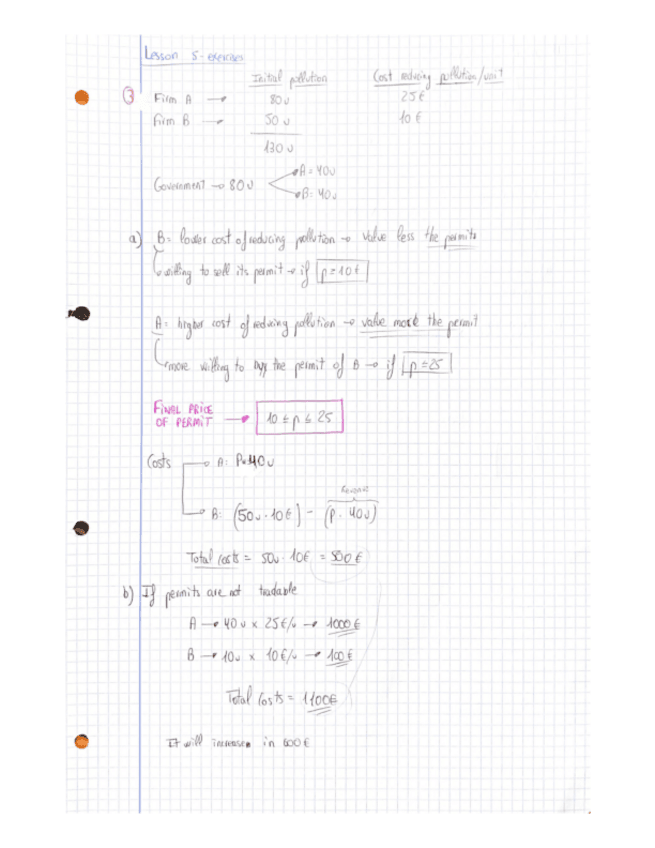 Lesson 5-exercises
Initial pollution Cost reducing pollution/unit
③ Firm A → 80u 25€
Firm B → 50u 10€
130u
Government → 80u A = 40u
B: 40u
a) B = lower cost of reducing pollution → value less the permits
willing to sell its permit → if p=10€
A = higher cost of reducing pollution → value more the permit
more willing to buy the permit of B → if p=25
FINAL PRICE
OF PERMIT → 10 ≤ p ≤ 25
Costs → A: P×40u
Revenue
→ B: (50u · 10€) - (p · 40u)
Total costs = 50u · 10€ = 500€
b) If permits are not tradable
A → 40u × 25€/u → 1000€
B → 10u × 10€/u → 100€
Total costs = 1100€
It will increase in 600€